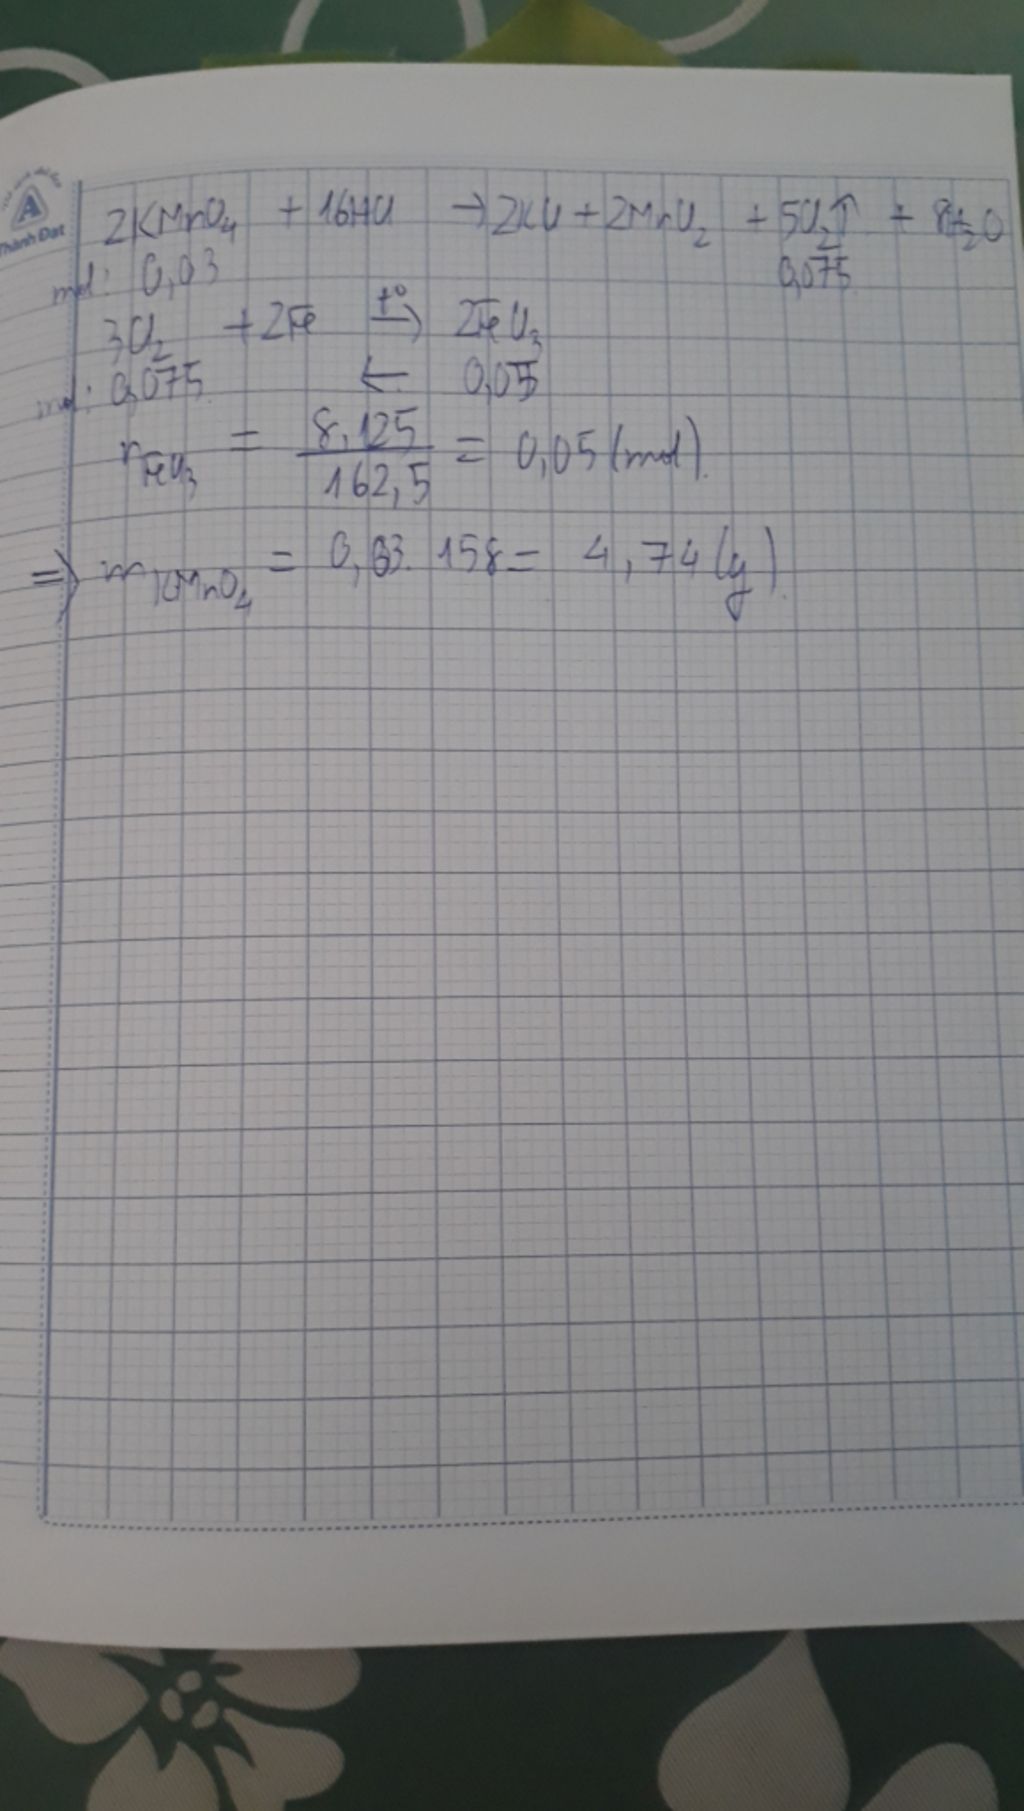 Thành Đạt
2KMnO₄ + 16HCl → 2KCl + 2MnCl₂ + 5Cl₂↑ + 8H₂O
mol: 0,03 0,075
3Cl₂ + 2Fe t° → 2FeCl₃
mol: 0,075 ← 0,05
n FeCl₃ = 8,125 / 162,5 = 0,05 (mol).
=> m KMnO₄ = 0,03. 158 = 4,74 (g).